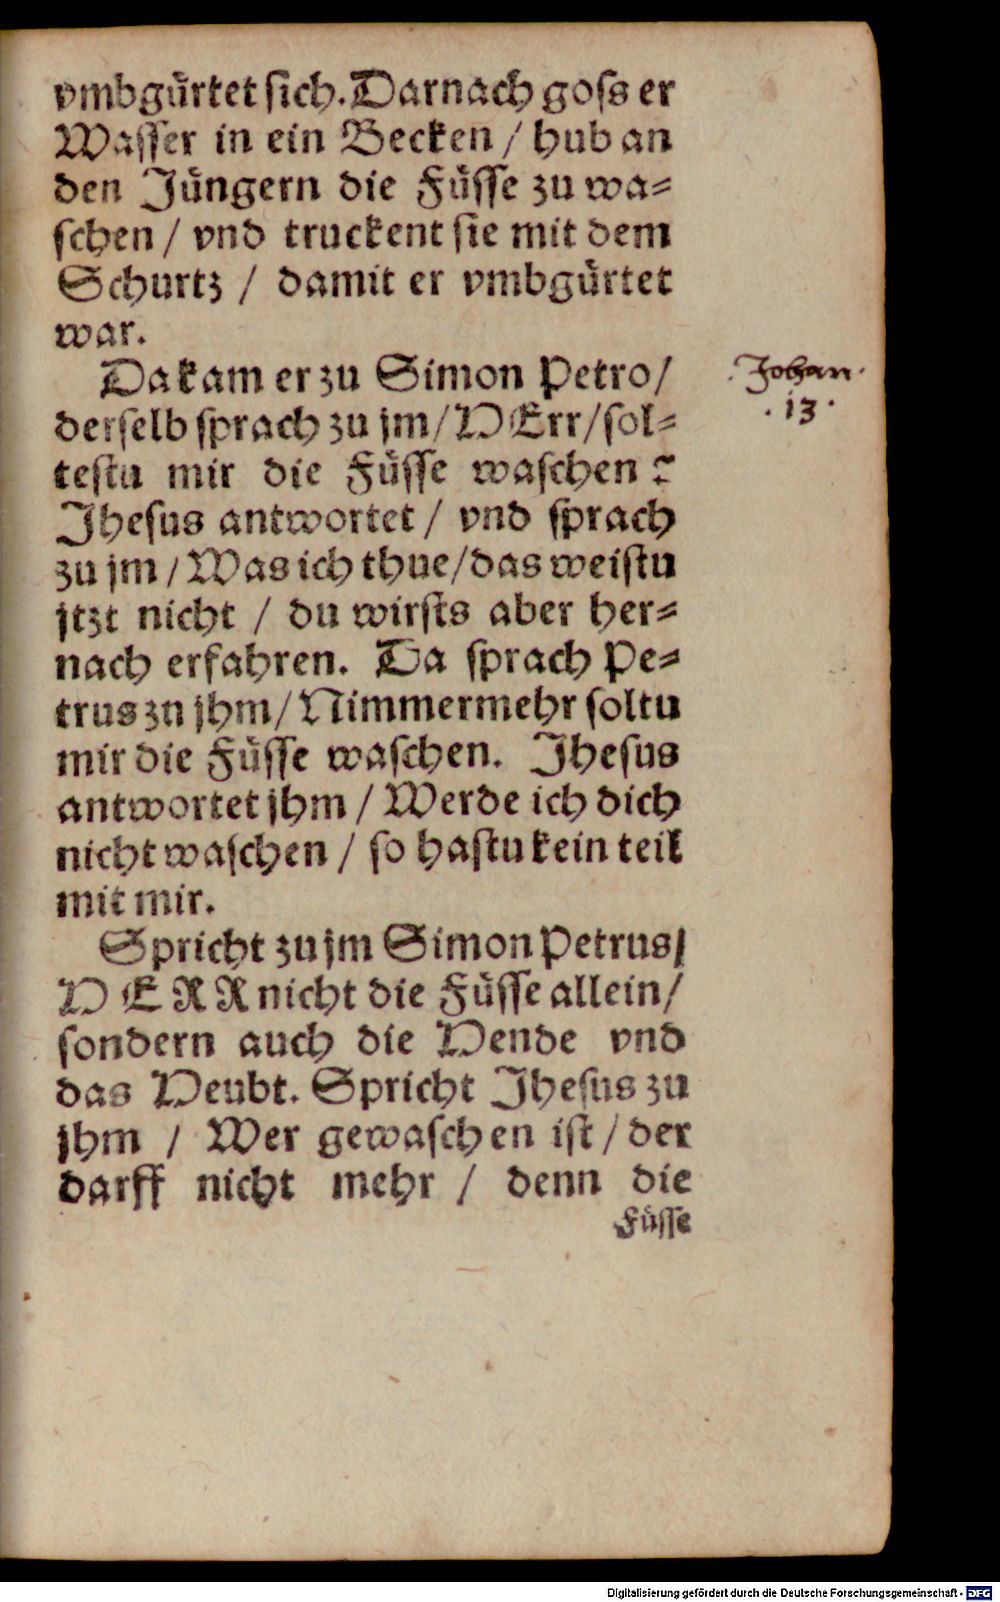 vmbguͤrtet ſich. Darnach goſs er
Waſſer in ein Becken / hub an
den Juͤngern die Fuͤſſe zu wa⸗
ſchen / vnd truckent ſie mit dem
Schurtz / damit er vmbguͤrtet
war.
Da kam er zu Simon Petro /
derſelb ſprach zu jm / HErr / ſol⸗
teſtu mir die Fuͤſſe waſchen?
Jheſus antwortet / vnd ſprach
zu jm / Was ich thue / das weiſtu
jtzt nicht / du wirſts aber her⸗
nach erfahren. Da ſprach Pe⸗
trus zu jhm / Nimmermehr ſoltu
mir die Fuͤſſe waſchen. Jheſus
antwortet jhm / Werde ich dich
nicht waſchen / ſo haſtu kein teil
mit mir.
Spricht zu jm Simon Petrus /
HERR nicht die Fuͤſſe allein /
ſondern auch die Hende vnd
das Heubt. Spricht Jheſus zu
jhm / Wer gewaſchen iſt / der
darff nicht mehr / denn die
Fuͤſſe
. Johan .
. 13 .
Digitalisierung gefördert durch die Deutsche Forschungsgemeinschaft - DFG